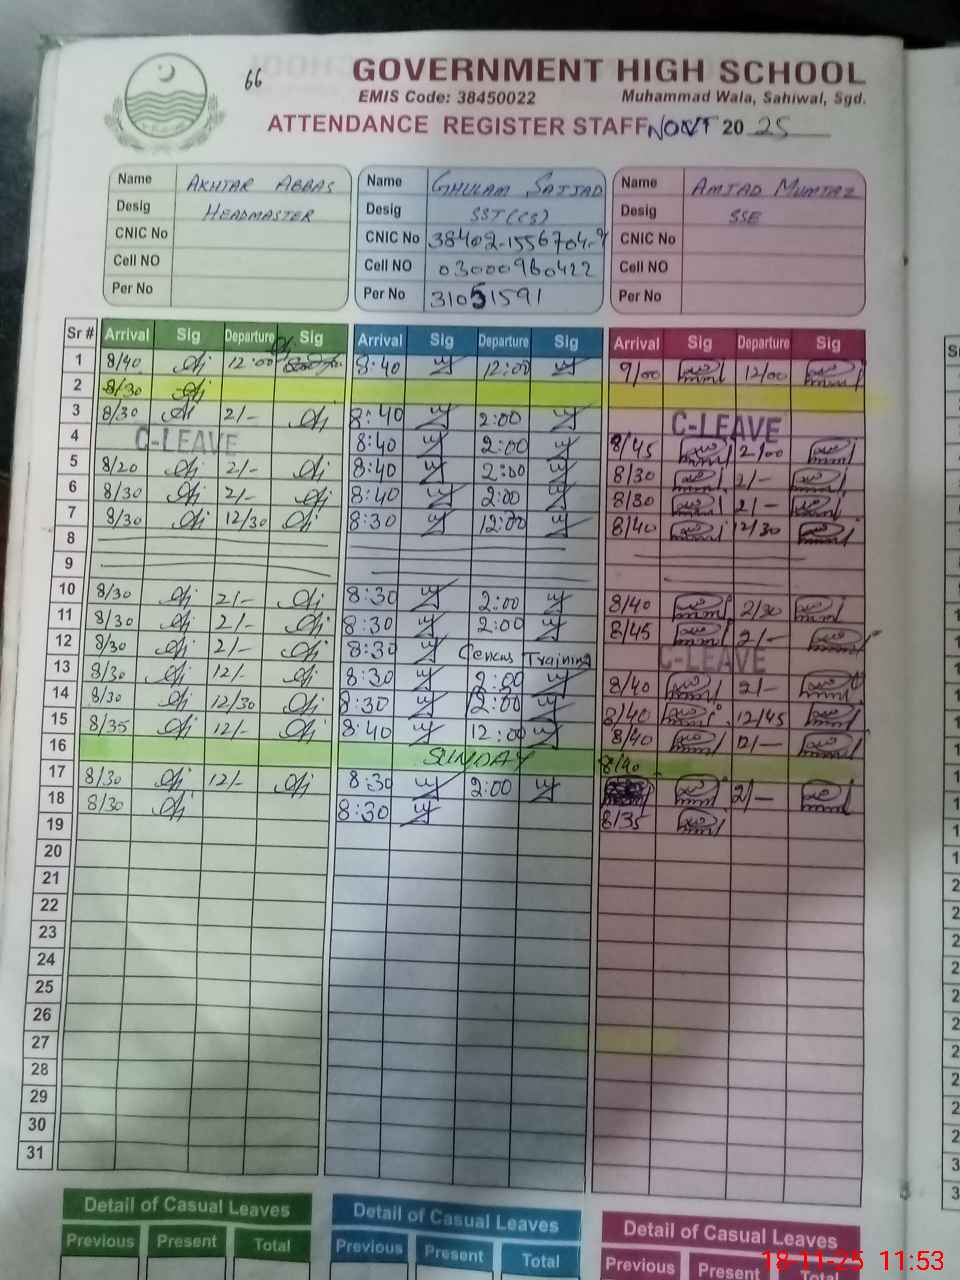 66
GOVERNMENT HIGH SCHOOL
EMIS Code: 38450022 Muhammad Wala, Sahiwal, Sgd.
ATTENDANCE REGISTER STAFF NOVT 20 25
Name AKHTAR ABBAS Name GHULAM SAJJAD Name AMJAD MUMTAZ
Desig HEADMASTER Desig SST(CS) Desig SSE
CNIC No CNIC No 38402-1556704-9 CNIC No
Cell NO Cell NO 03000960422 Cell NO
Per No Per No 31051591 Per No
Sr # Arrival Sig Departure Sig Arrival Sig Departure Sig Arrival Sig Departure Sig
1 8/40 12:00 8:40 12:00 9/00 12/00
2 8/30
3 8/30 2/- 8:40 2:00 C-LEAVE
4 C-LEAVE 8:40 2:00 8/45 2/00
5 8/20 2/- 8:40 2:00 8/30 2/-
6 8/30 2/- 8:40 2:00 8/30 2/-
7 8/30 12/30 8:30 12:00 8/40 12/30
8
9
10 8/30 2/- 8:30 2:00 8/40 2/30
11 8/30 2/- 8:30 2:00 8/45 2/-
12 8/30 2/- 8:30 Cencus Training C-LEAVE
13 8/30 12/- 8:30 2:00 8/40 2/-
14 8/30 12/30 8:30 2:00 8/40 12/45
15 8/35 12/- 8:40 12:00 8/40 12/-
16 SUNDAY 8/40
17 8/30 12/- 8:30 2:00 2/-
18 8/30 8:30 8/35
19
20
21
22
23
24
25
26
27
28
29
30
31
Detail of Casual Leaves Detail of Casual Leaves Detail of Casual Leaves
Previous Present Total Previous Present Total Previous Present Total
18-11-25 11:53